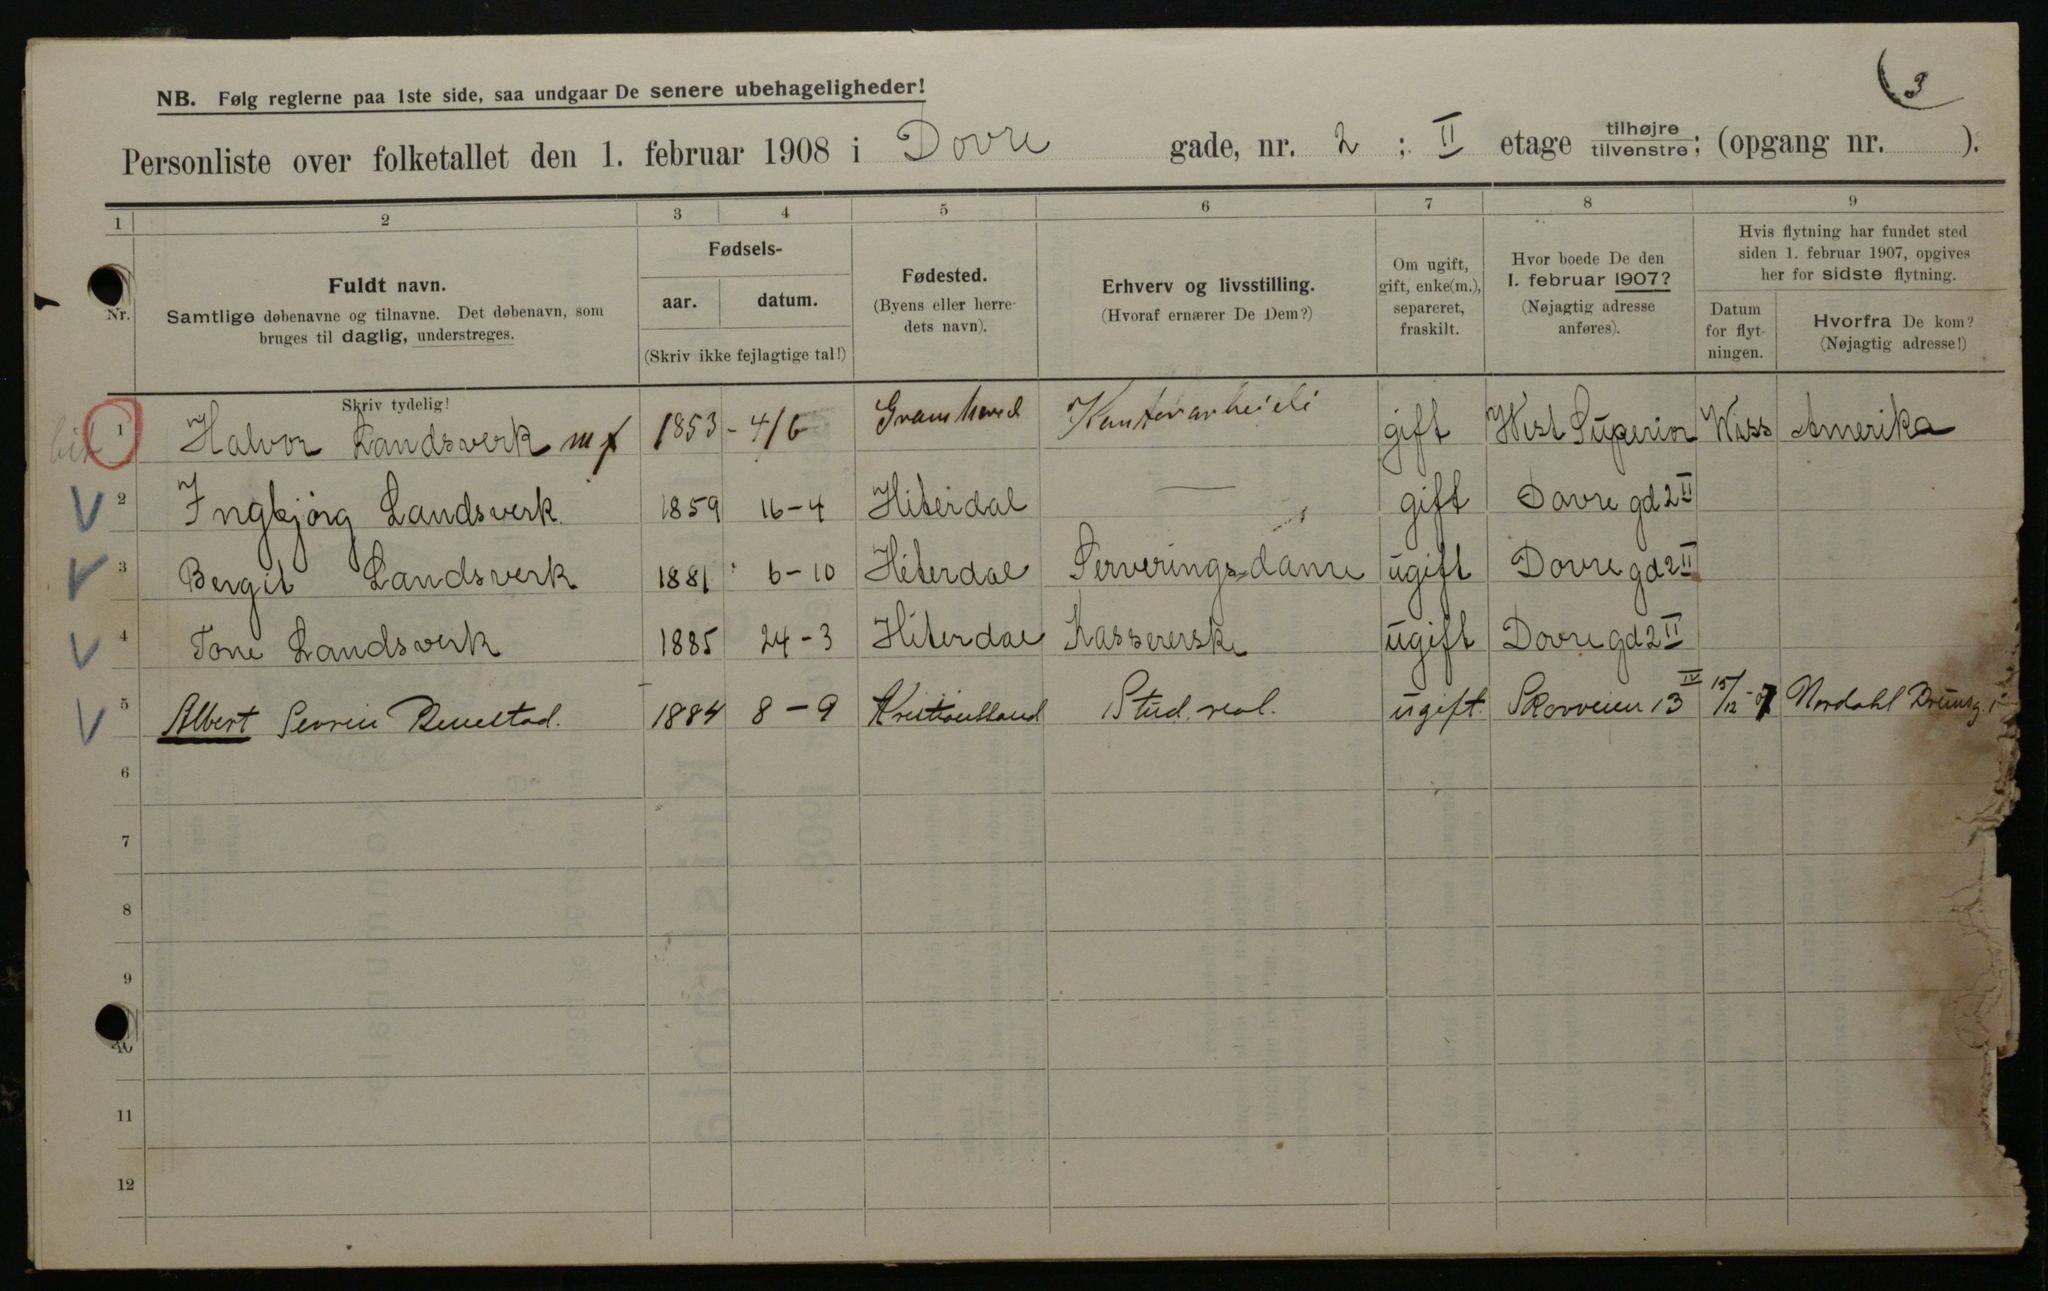 3
NB. Følg reglerne paa 1ste side, saa undgaar De senere ubehageligheder!
Personliste over folketallet den 1. februar 1908 i Dovre gade, nr. 2 ; II etage tilhøjre tilvenstre; (opgang nr. ).
1 2 3 4 5 6 7 8 9
Nr.
Fuldt navn.
Samtlige døbenavne og tilnavne. Det døbenavn, som
bruges til daglig, understreges.
Fødsels-
aar. datum.
(Skriv ikke fejlagtige tal!)
Fødested.
(Byens eller herre-
dets navn).
Erhverv og livsstilling.
(Hvoraf ernærer De Dem?)
Om ugift,
gift, enke(m.),
separeret,
fraskilt.
Hvor boede De den
1. februar 1907?
(Nøjagtig adresse
anføres).
Hvis flytning har fundet sted
siden 1. februar 1907, opgives
her for sidste flytning.
Datum
for flyt-
ningen.
Hvorfra De kom?
(Nøjagtig adresse!)
Skriv tydelig!
1 Halvor Landsverk mf 1853 - 4/6 Gramherred gift West Superior Wiss Amerika
2 Ingbjörg Landsverk 1859 16-4 Hiterdal — gift Dovre gd 2 II
3 Bergit Landsverk 1881 6-10 Hiterdal Serverings-dame ugift Dovre gd 2 II
4 Tone Landsverk 1885 24-3 Hiterdal Kassererske ugift Dovre gd 2 II
5 Albert Sevrin 1884 8-9 Kristianssand Stud. real. ugift. Skovveien 13 IV 15/12-07 Nordahl Brunsg.
6
7
8
9
10
11
12